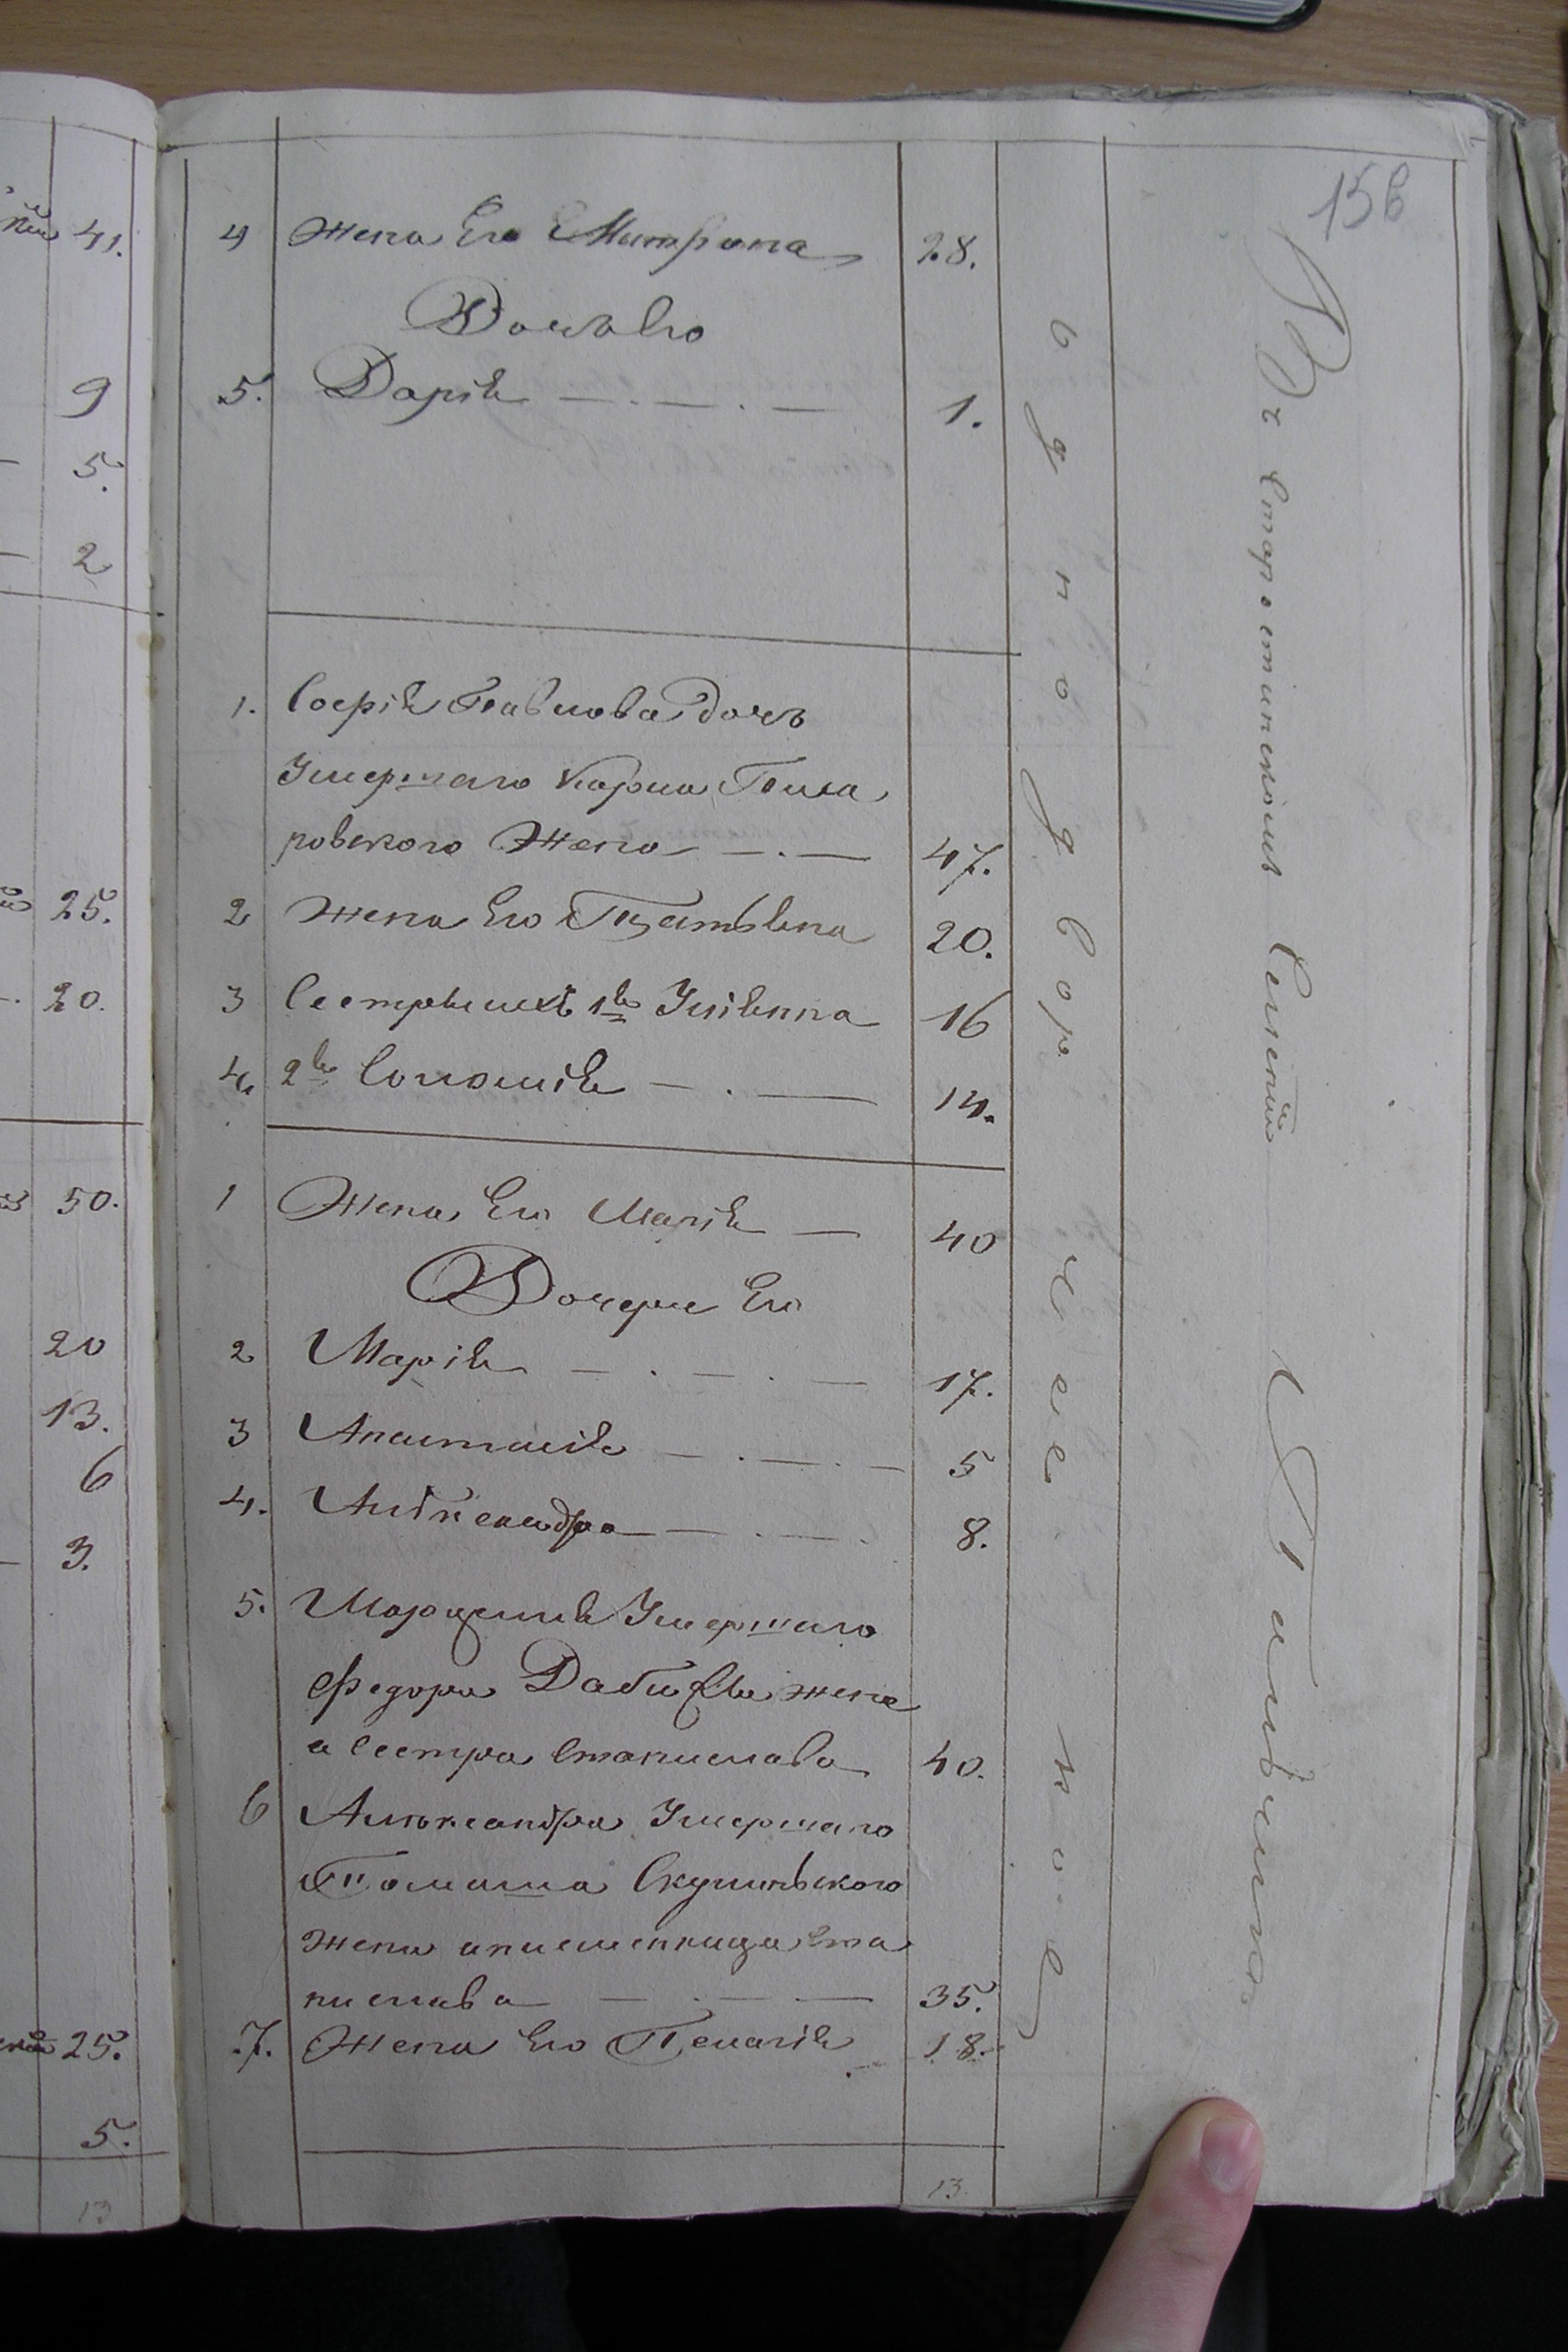 156
4 Жена Его Матрона 28.
Дочь Его
5. Дарія 1.
1. Софія Павлова дочь
Умершаго Карла Пила
ровского Жена 47.
2 Жена Его Татьяна 20.
3 Сестры ихъ 1я Уліянна 16
4. 2я Соломія 14.
1 Жена Его Марія 40
Дочери Его
2 Марія 17.
3 Анастасія 5
4. Александра 8.
5. Умершаго
Федора жена
а Сестра Станислава 40.
6 Александра Умершаго
Томаша
жена племенница Ста
нислава 35.
7. Жена Его Пелагія 18.
13.
однодворческое
Въ Селеніи
41.
9
5.
2
25.
20.
50.
20
13.
6
3.
25.
5.
13